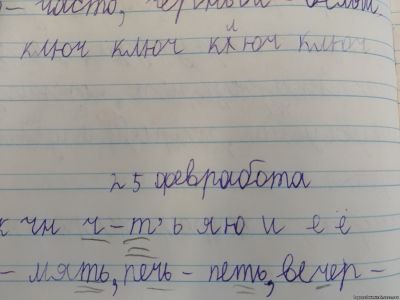 – часто, чёрный – белый.
ключ ключ ключ ключ
25 февработа
к чн ч – т' ь я ю и е ё
– мять, печь – петь, вечер –